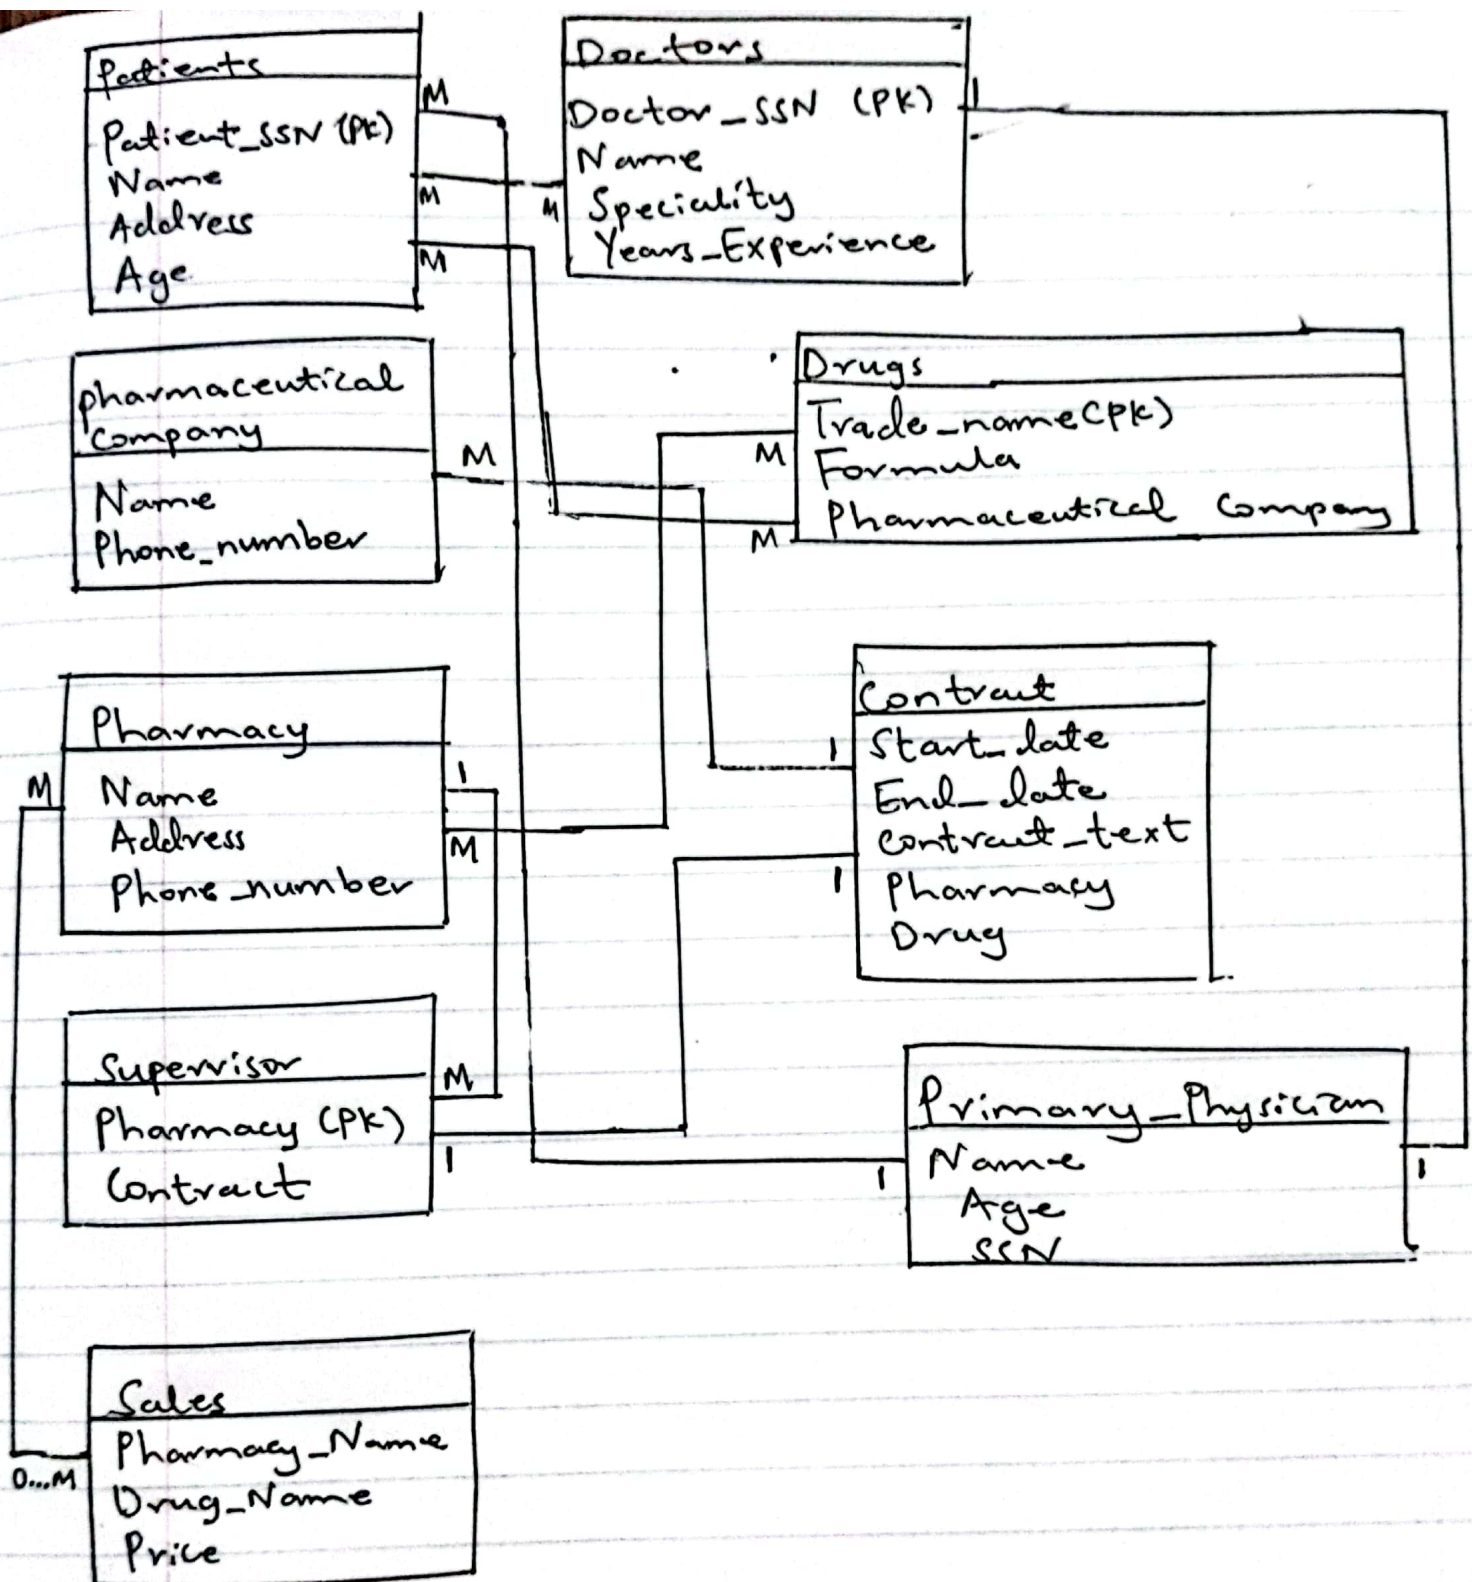 Patients
Patient_SSN (PK)
Name
Address
Age
M
M
M
Doctors
Doctor_SSN (PK)
Name
Speciality
Years_Experience
M
1
pharmaceutical
Company
Name
Phone_number
M
Drugs
Trade_name(PK)
Formula
Pharmaceutical Company
M
M
Pharmacy
Name
Address
Phone_number
M
1
M
Contract
Start_date
End_date
Contract_text
Pharmacy
Drug
1
1
Supervisor
Pharmacy (PK)
Contract
M
1
Primary_Physician
Name
Age
SSN
1
1
Sales
Pharmacy_Name
Drug_Name
Price
0...M